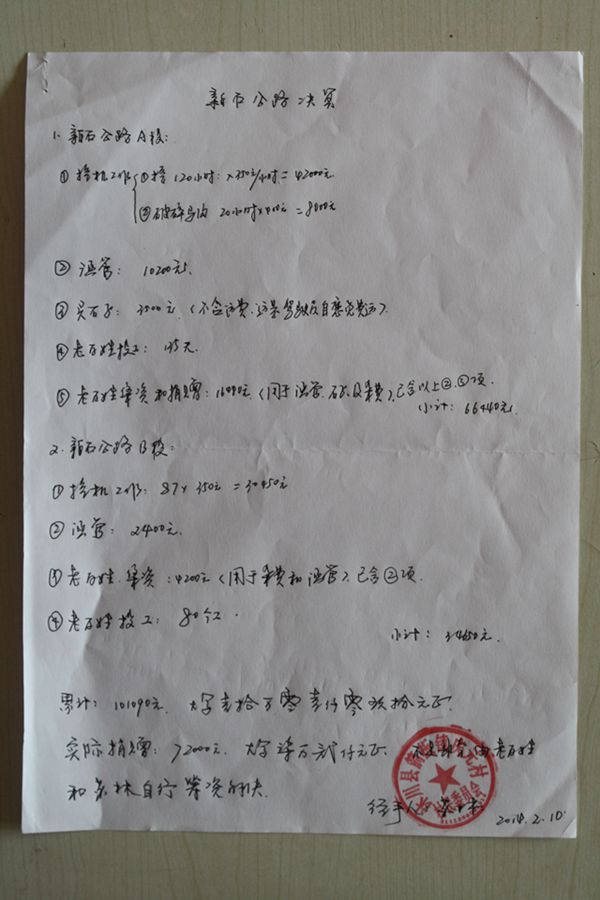 新石公路决算
1. 新石公路A段:
① 挖机工作 ①挖 120小时×350元/小时=42000元
②破碎 20小时×400元=8000元
② 涵管: 10200元.
③ 买石子: 3500元 (不含运费.
④ 老百姓投工:
⑤ 老百姓集资和捐赠: (用于涵管. ) 已含以上②.③项.
小计: 66440元.
2. 新石公路B段:
① 挖机工作: 87×350元=30450元
② 涵管: 2400元.
③ 老百姓集资: 4200元 (用于 和涵管) 已含②项.
④ 老百姓投工: 80个工.
小计: 34650元.
累计: 101090元. 大写壹拾万零壹仟零玖拾元正.
实际捐赠: 72000元. 大写柒万贰仟元正. 由老百姓
和 自行筹资解决.
经手人:
2014.2.10